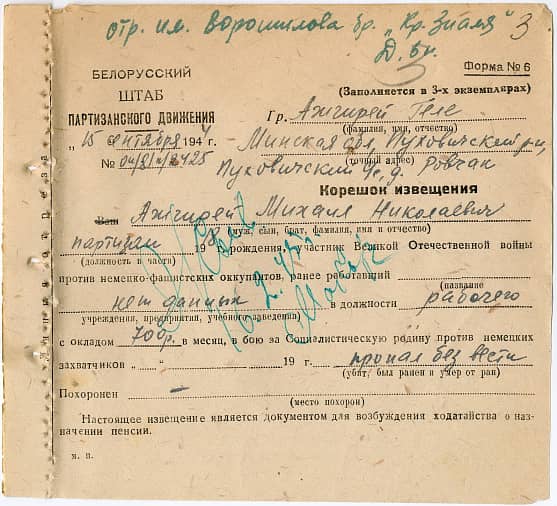 отр. им. Ворошилова бр. "Кр. Знамя" 3
3
БЕЛОРУССКИЙ
ШТАБ
ПАРТИЗАНСКОГО ДВИЖЕНИЯ
"15 сентября 1944 г.
№
Форма № 6
(Заполняется в 3-х экземплярах)
Гр. Ажгирей
(фамилия, имя, отчество)
Минская обл, Пуховичский р-н,
(точный адрес)
Пуховичский с/с, д.
Корешок извещения
Ваш Ажгирей Михаил Николаевич
(муж, сын, брат, фамилия, имя и отчество)
партизан 19 г. рождения, участник Великой Отечественной войны
(должность в части)
против немецко-фашистских оккупантов, ранее работавший
(название
нет данных в должности рабочего
учреждения, предприятия, учебного заведения)
с окладом 70 р. в месяц, в бою за Социалистическую родину против немецких
захватчиков " " 19 г. пропал без вести
(убит, был ранен и умер от ран)
Похоронен —
(место похорон)
Настоящее извещение является документом для возбуждения ходатайства о наз-
начении пенсии.
м. п.